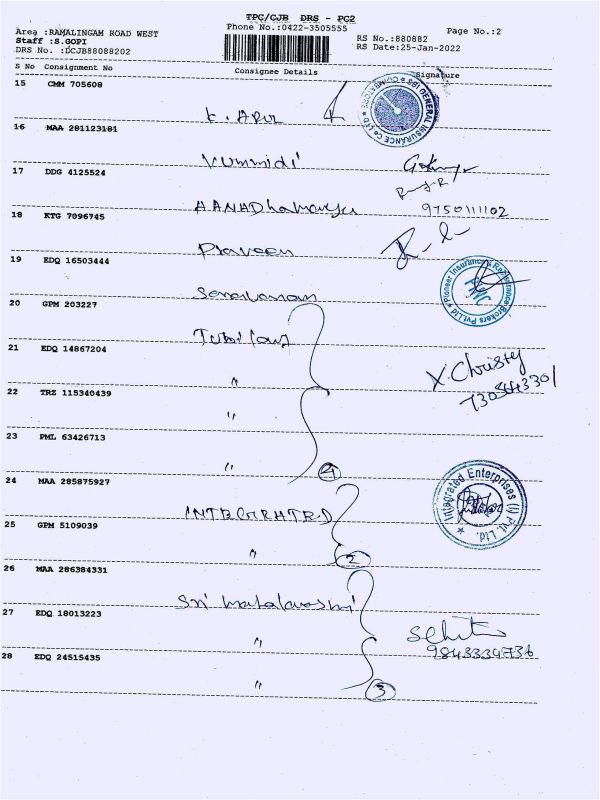 TPC/CJB DRS - PC2
Phone No.:0422-3505555
Page No.:2
Area :RAMALINGAM ROAD WEST
Staff :S.GOPI
DRS No. :DCJB88088202
RS No.:880882
RS Date:25-Jan-2022
S No Consignment No Consignee Details Signature
15 CMM 705608
SBI GENERAL INSURANCE Co LTD COIMBATORE
16 MAA 281123181
Vummidi
17 DDG 4125524
9750111102
18 KTG 7096745
Praveen
19 EDQ 16503444
Saravanan
Pioneer Insurance & Reinsurance Brokers Pvt.Ltd
20 GPM 203227
21 EDQ 14867204
"
X Christy
7305443301
22 TRZ 115340439
"
23 PML 63426713
"
4
24 MAA 285875927
INTEGRATED
Integrated Enterprises (I) Pvt. Ltd.
25 GPM 5109039
"
2
26 MAA 286384331
Sri
27 EDQ 18013223
"
9843334736
28 EDQ 24515435
"
3